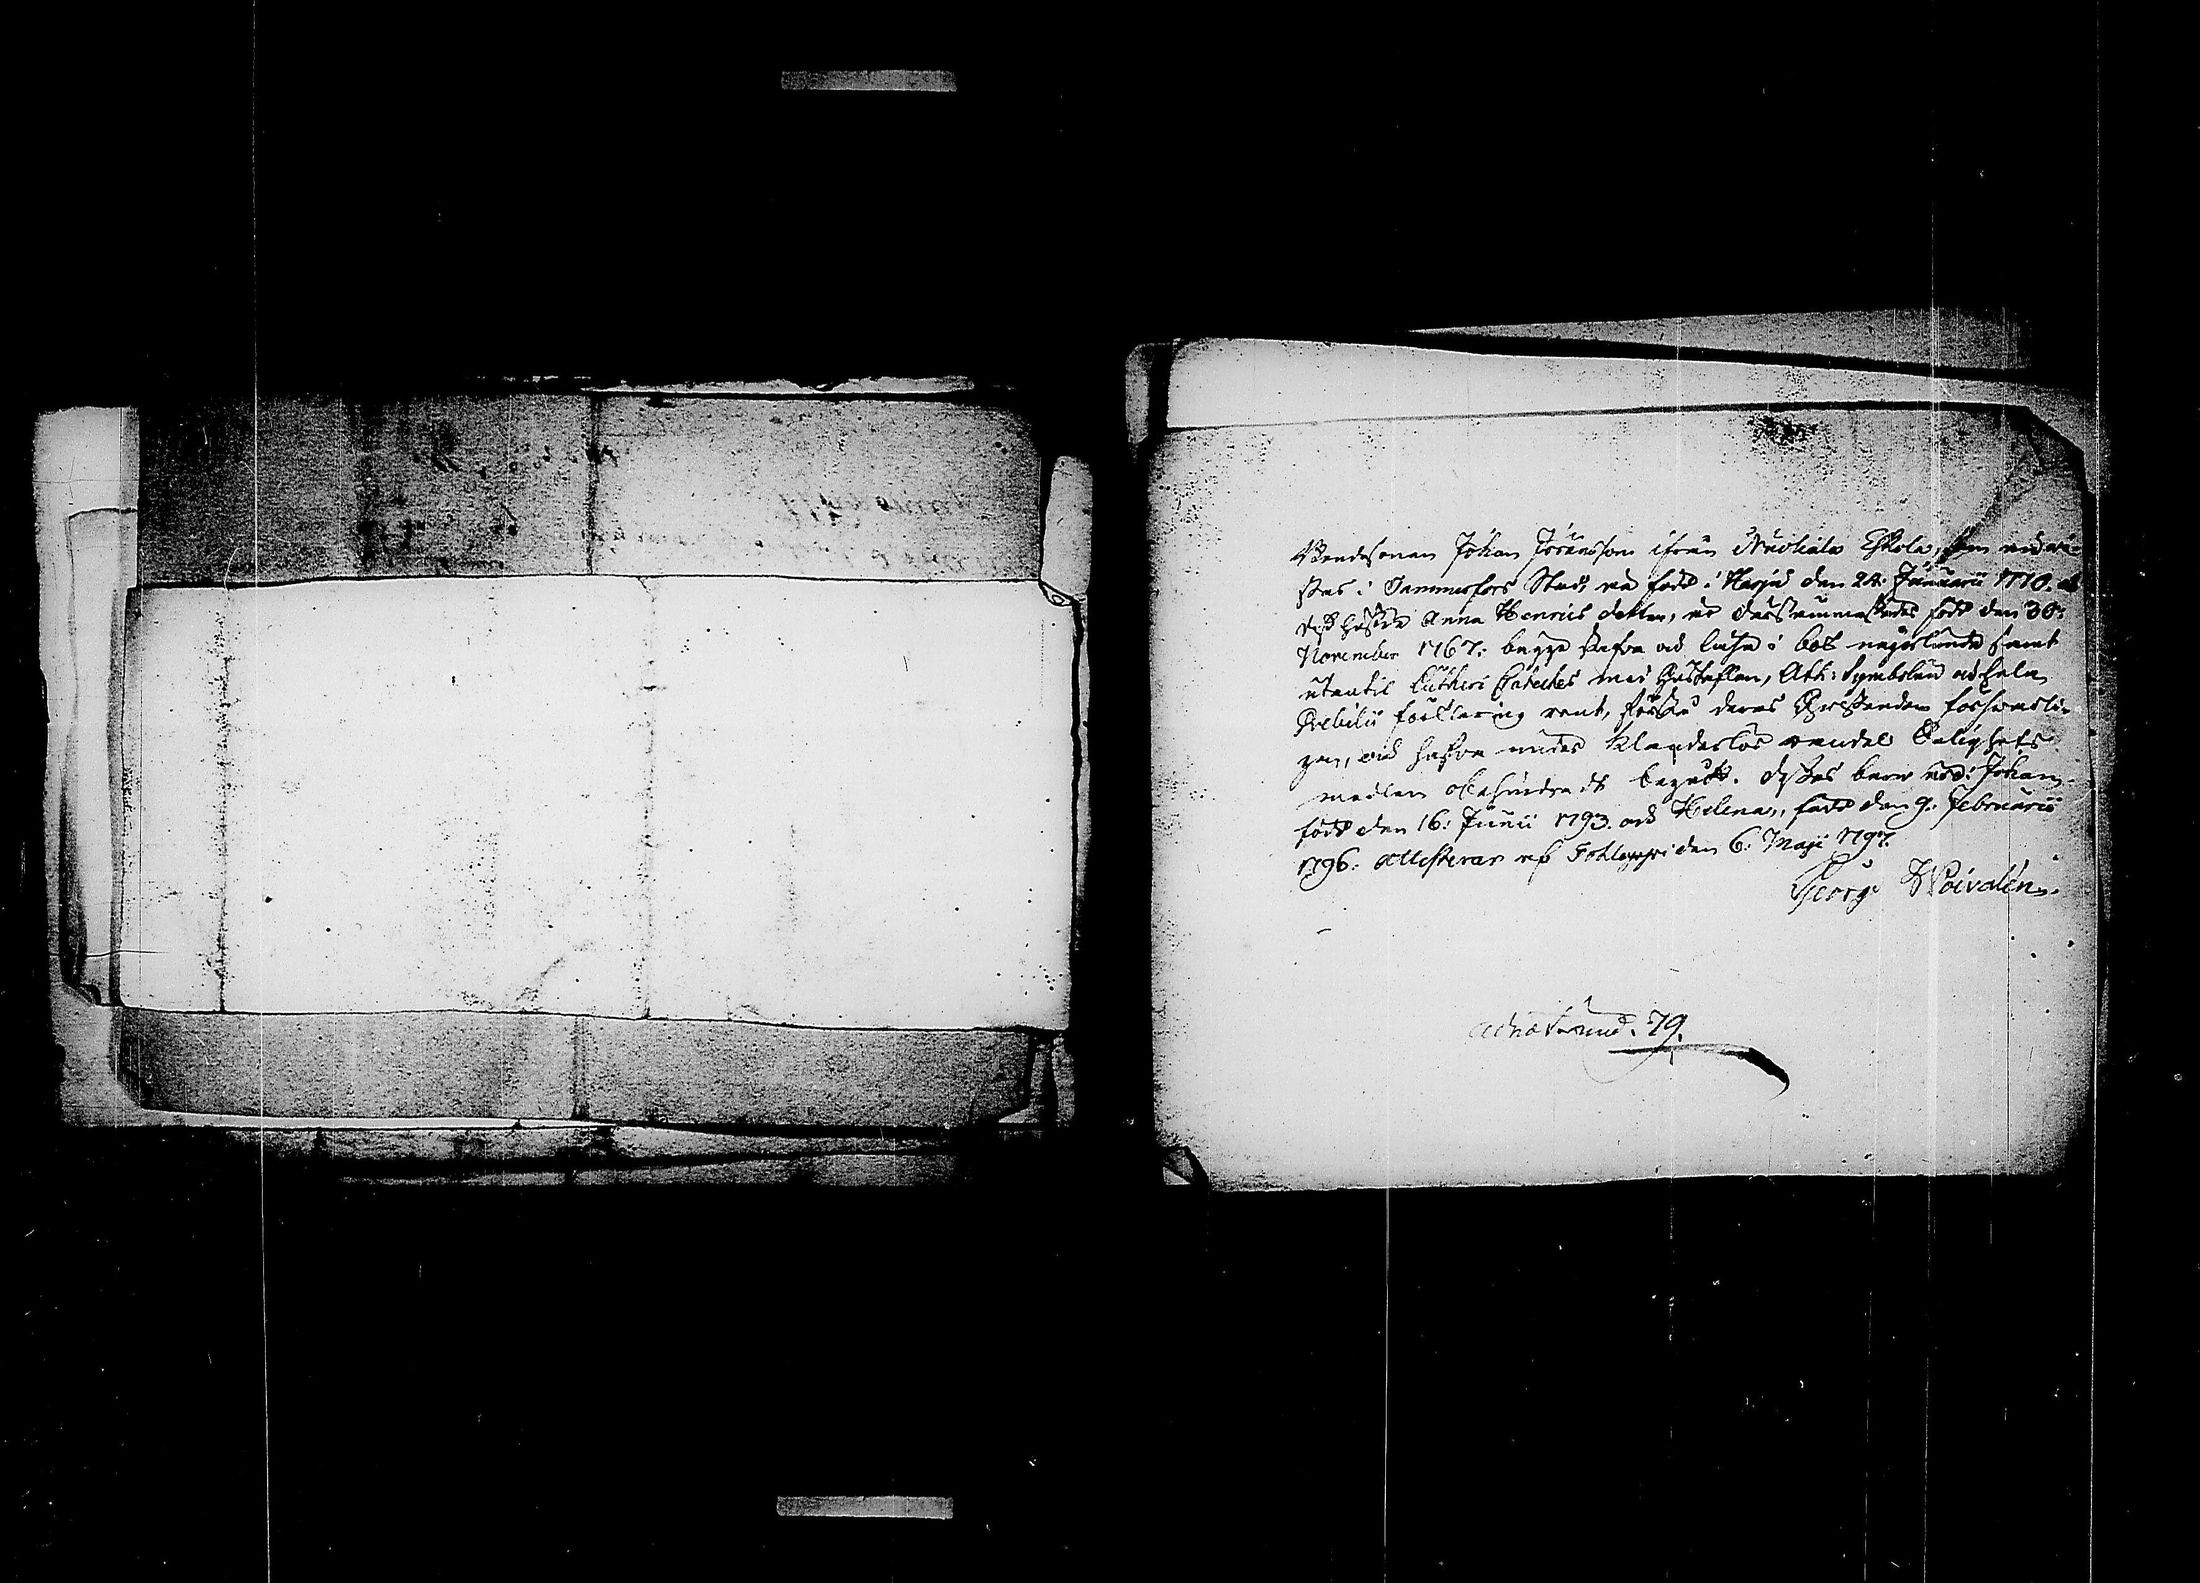 Bondesonen Johan Jöransson ifrån Nuoliala Eskola, som vid vi-
stas i Tammerfors Stad, är född i Harju den 24: Januarii 1770. och
dess hustru Anna Henrics dotter, är därsammastädes född den 30:
November 1767: begge kunna läsa i bok någorlunda samt
utantil Lutheri Cateches med Hustaflan, Ath: Symbolum och hela
Svebilii förklaring rent, förstå deras Christendom försvarli-
gen, och hafva under klanderlös vandel Salighets
medlen obehindradt begått. Desses barn äro: Johan
född den 16: Junii 1793. och Helena, född den 9: Februarii
1796. Attesterar af Tohloppi den 6: Maji 1797.
Georg Woivalén.
79.